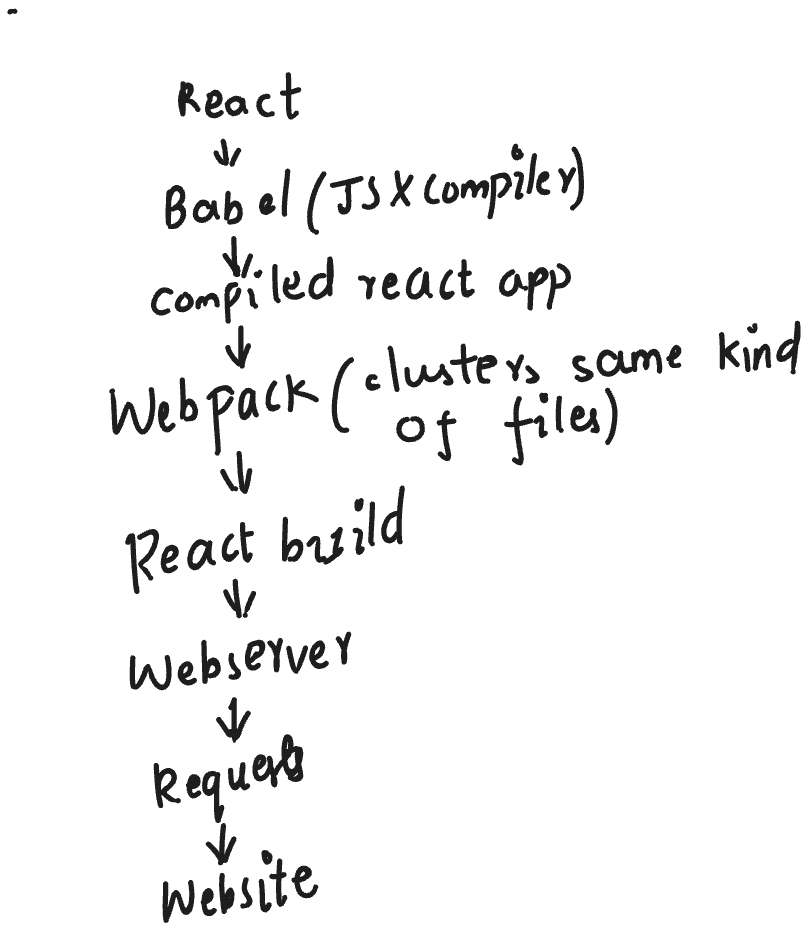 React
↓
Babel (JSX compiler)
↓
compiled react app
↓
Webpack (clusters same kind
of files)
↓
React build
↓
Webserver
↓
Requests
↓
Website